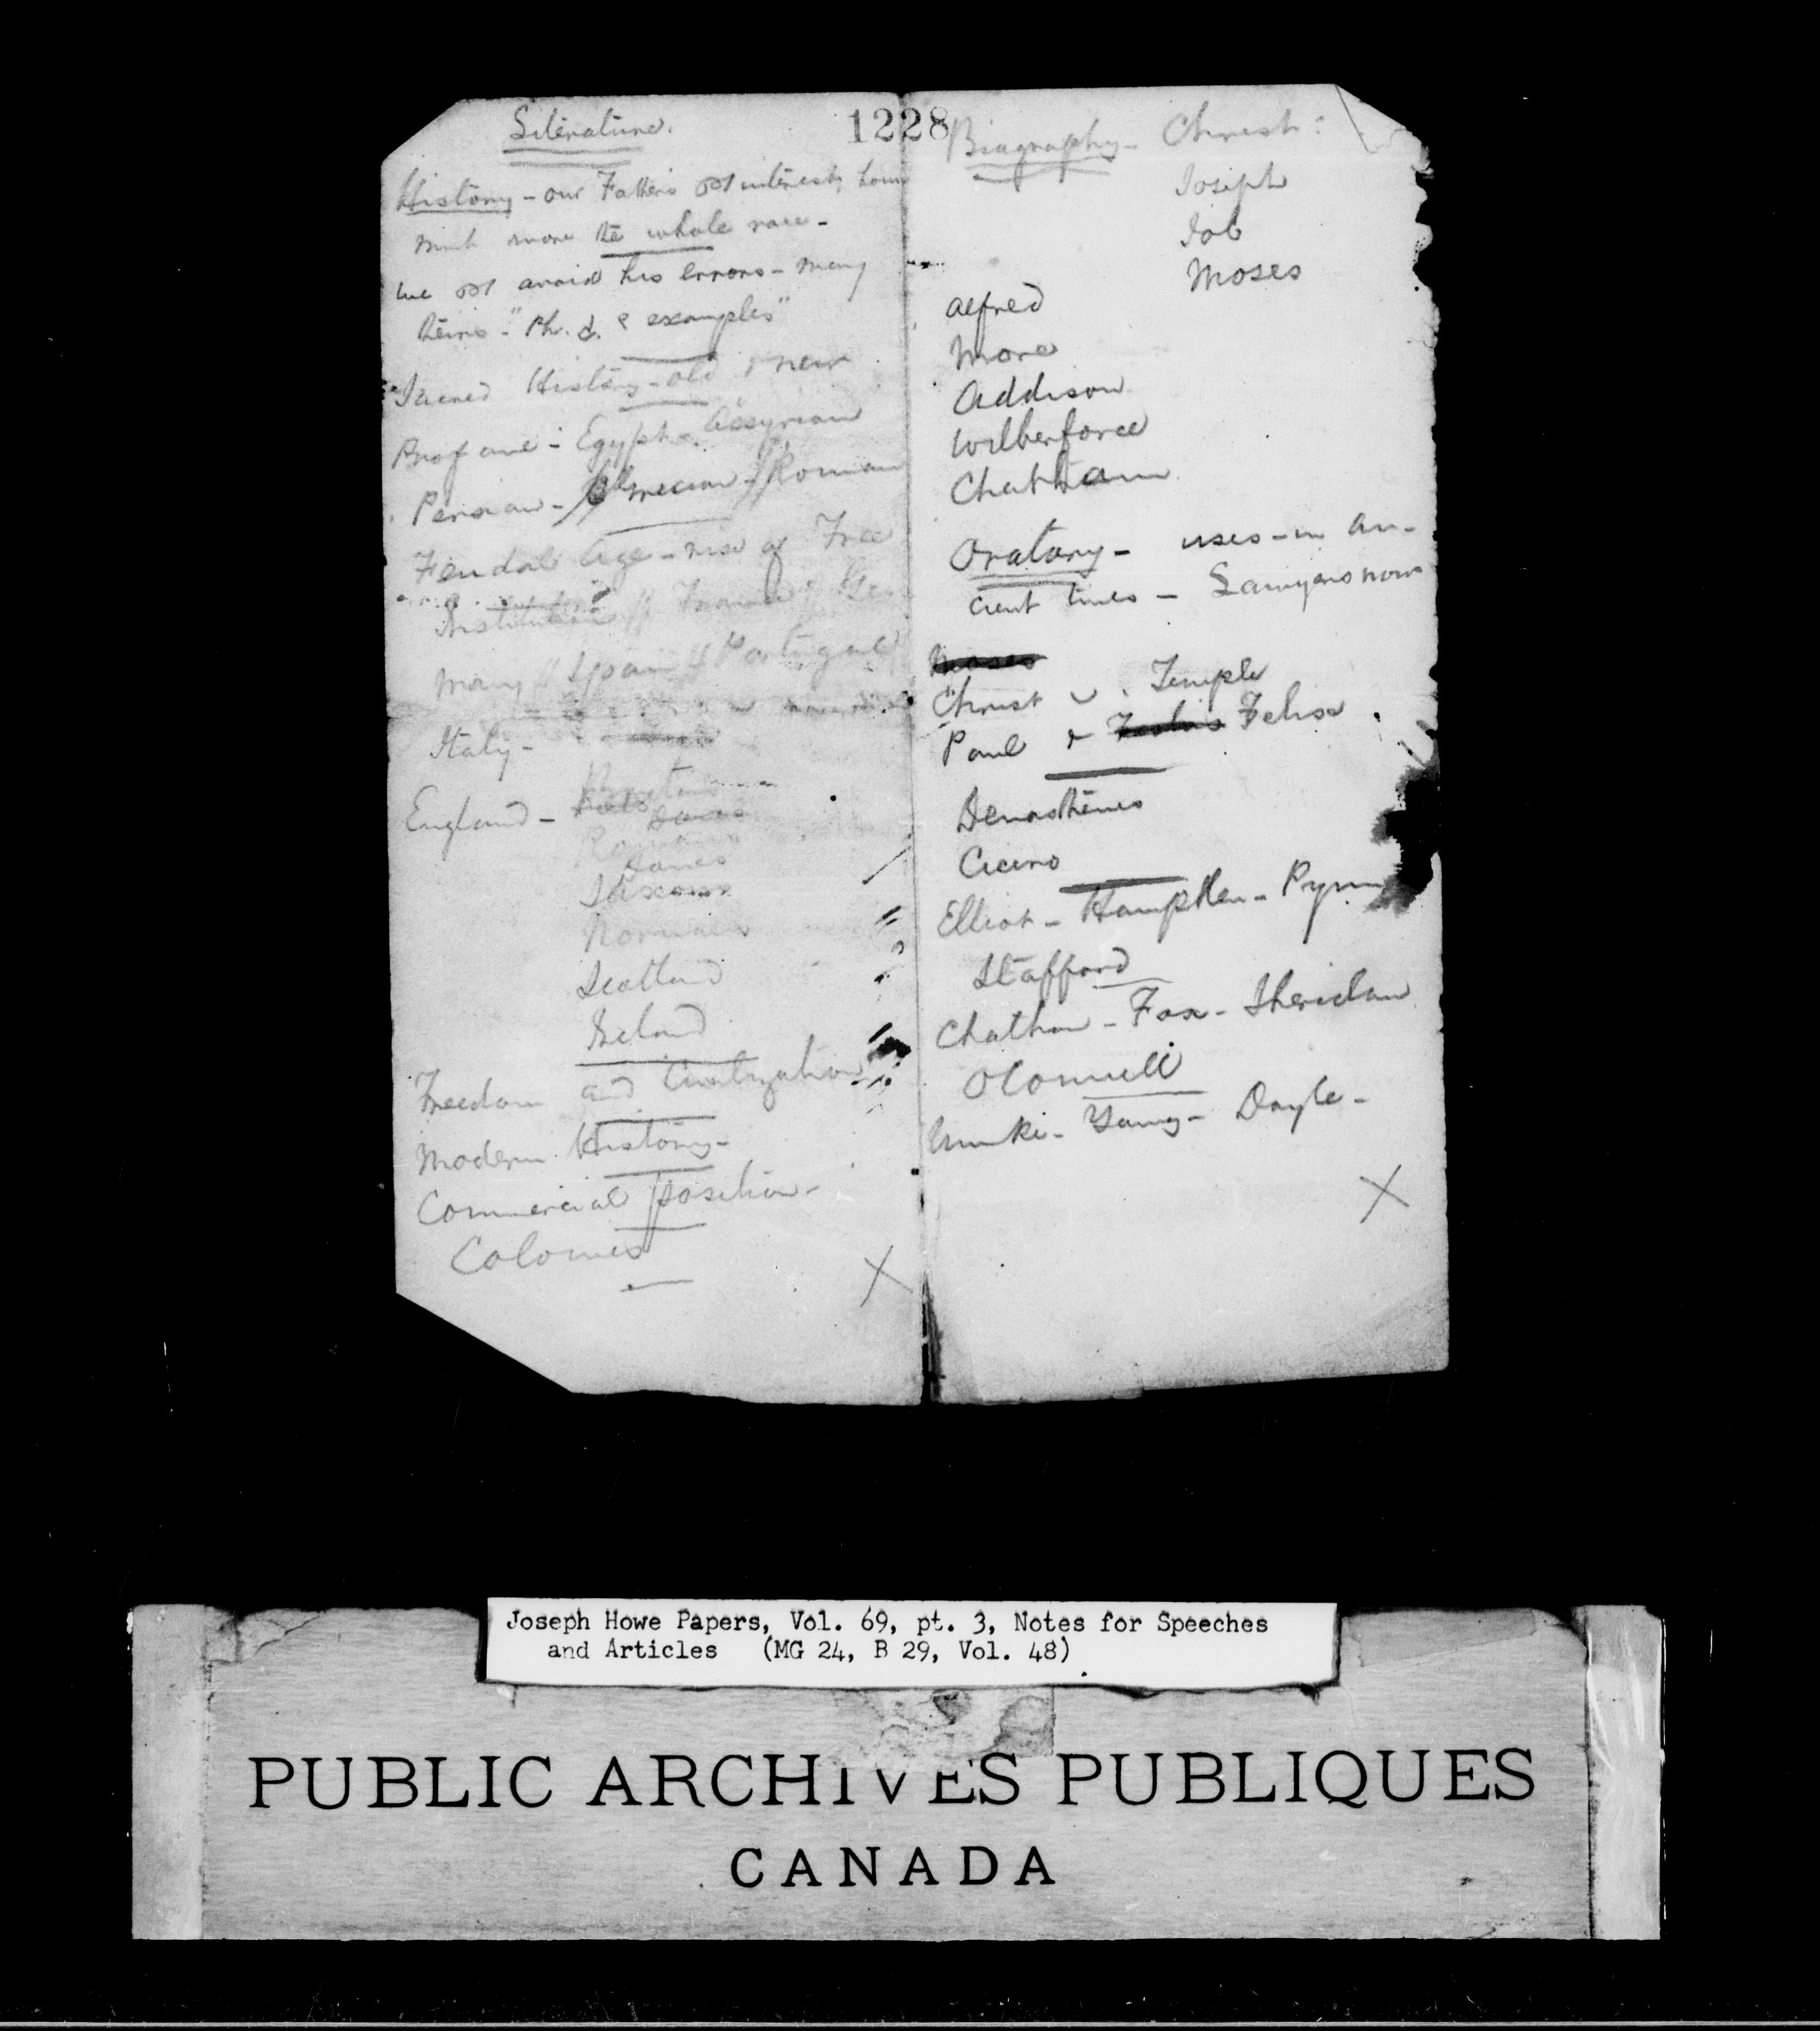 1228
Literature.
History - our Father's interests how
much more the whole race -
we avoid his errors - many
theirs - "Ph. d. examples"
Sacred History - old & new
Profane - Egypt - Assyrian
Persian - Grecian - Roman
Feudal Age - rise of Free
Institutions // France // Ger
many // Spain // Portugal //
Italy -
England - Britons
Danes
Saxons
Normans
Scotland
Ireland
Freedom and Civilization
Modern History -
Commercial position -
Colonies
Biography - Christ:
Joseph
Job
Moses
Alfred
More
Addison
Wilberforce
Chatham
Oratory - uses - in an-
cient times - Lawyers now
Moses
Christ Temple
Paul & Felix
Demosthenes
Cicero
Elliot - Hampden - Pym
Stafford
Chatham - Fox - Sheridan
OConnell
Young - Doyle -
Joseph Howe Papers, Vol. 69, pt. 3, Notes for Speeches
and Articles (MG 24, B 29, Vol. 48)
PUBLIC ARCHIVES PUBLIQUES
CANADA